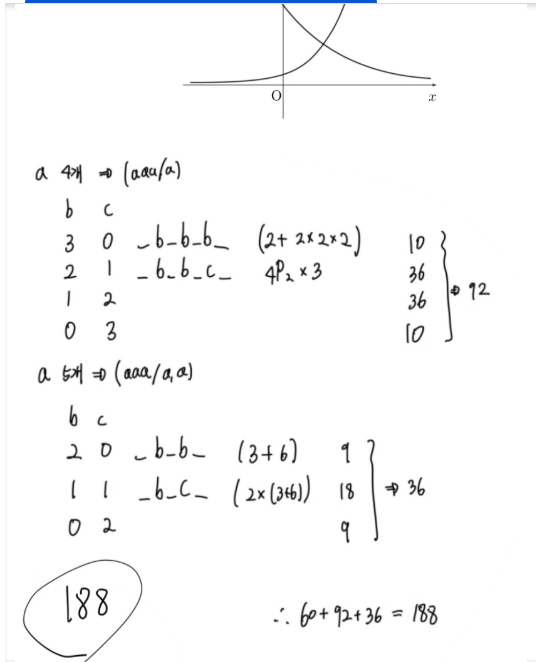 O x
a 4개 ⇒ (aaa/a)
b c
3 0 _b_b_b_ (2+2×2×2) 10
2 1 _b_b_c_ 4P₂×3 36
1 2 36
0 3 10
⇒ 92
a 5개 ⇒ (aaa/a,a)
b c
2 0 _b_b_ (3+6) 9
1 1 _b_c_ (2×(3+6)) 18
0 2 9
⇒ 36
188
∴ 60+92+36 = 188